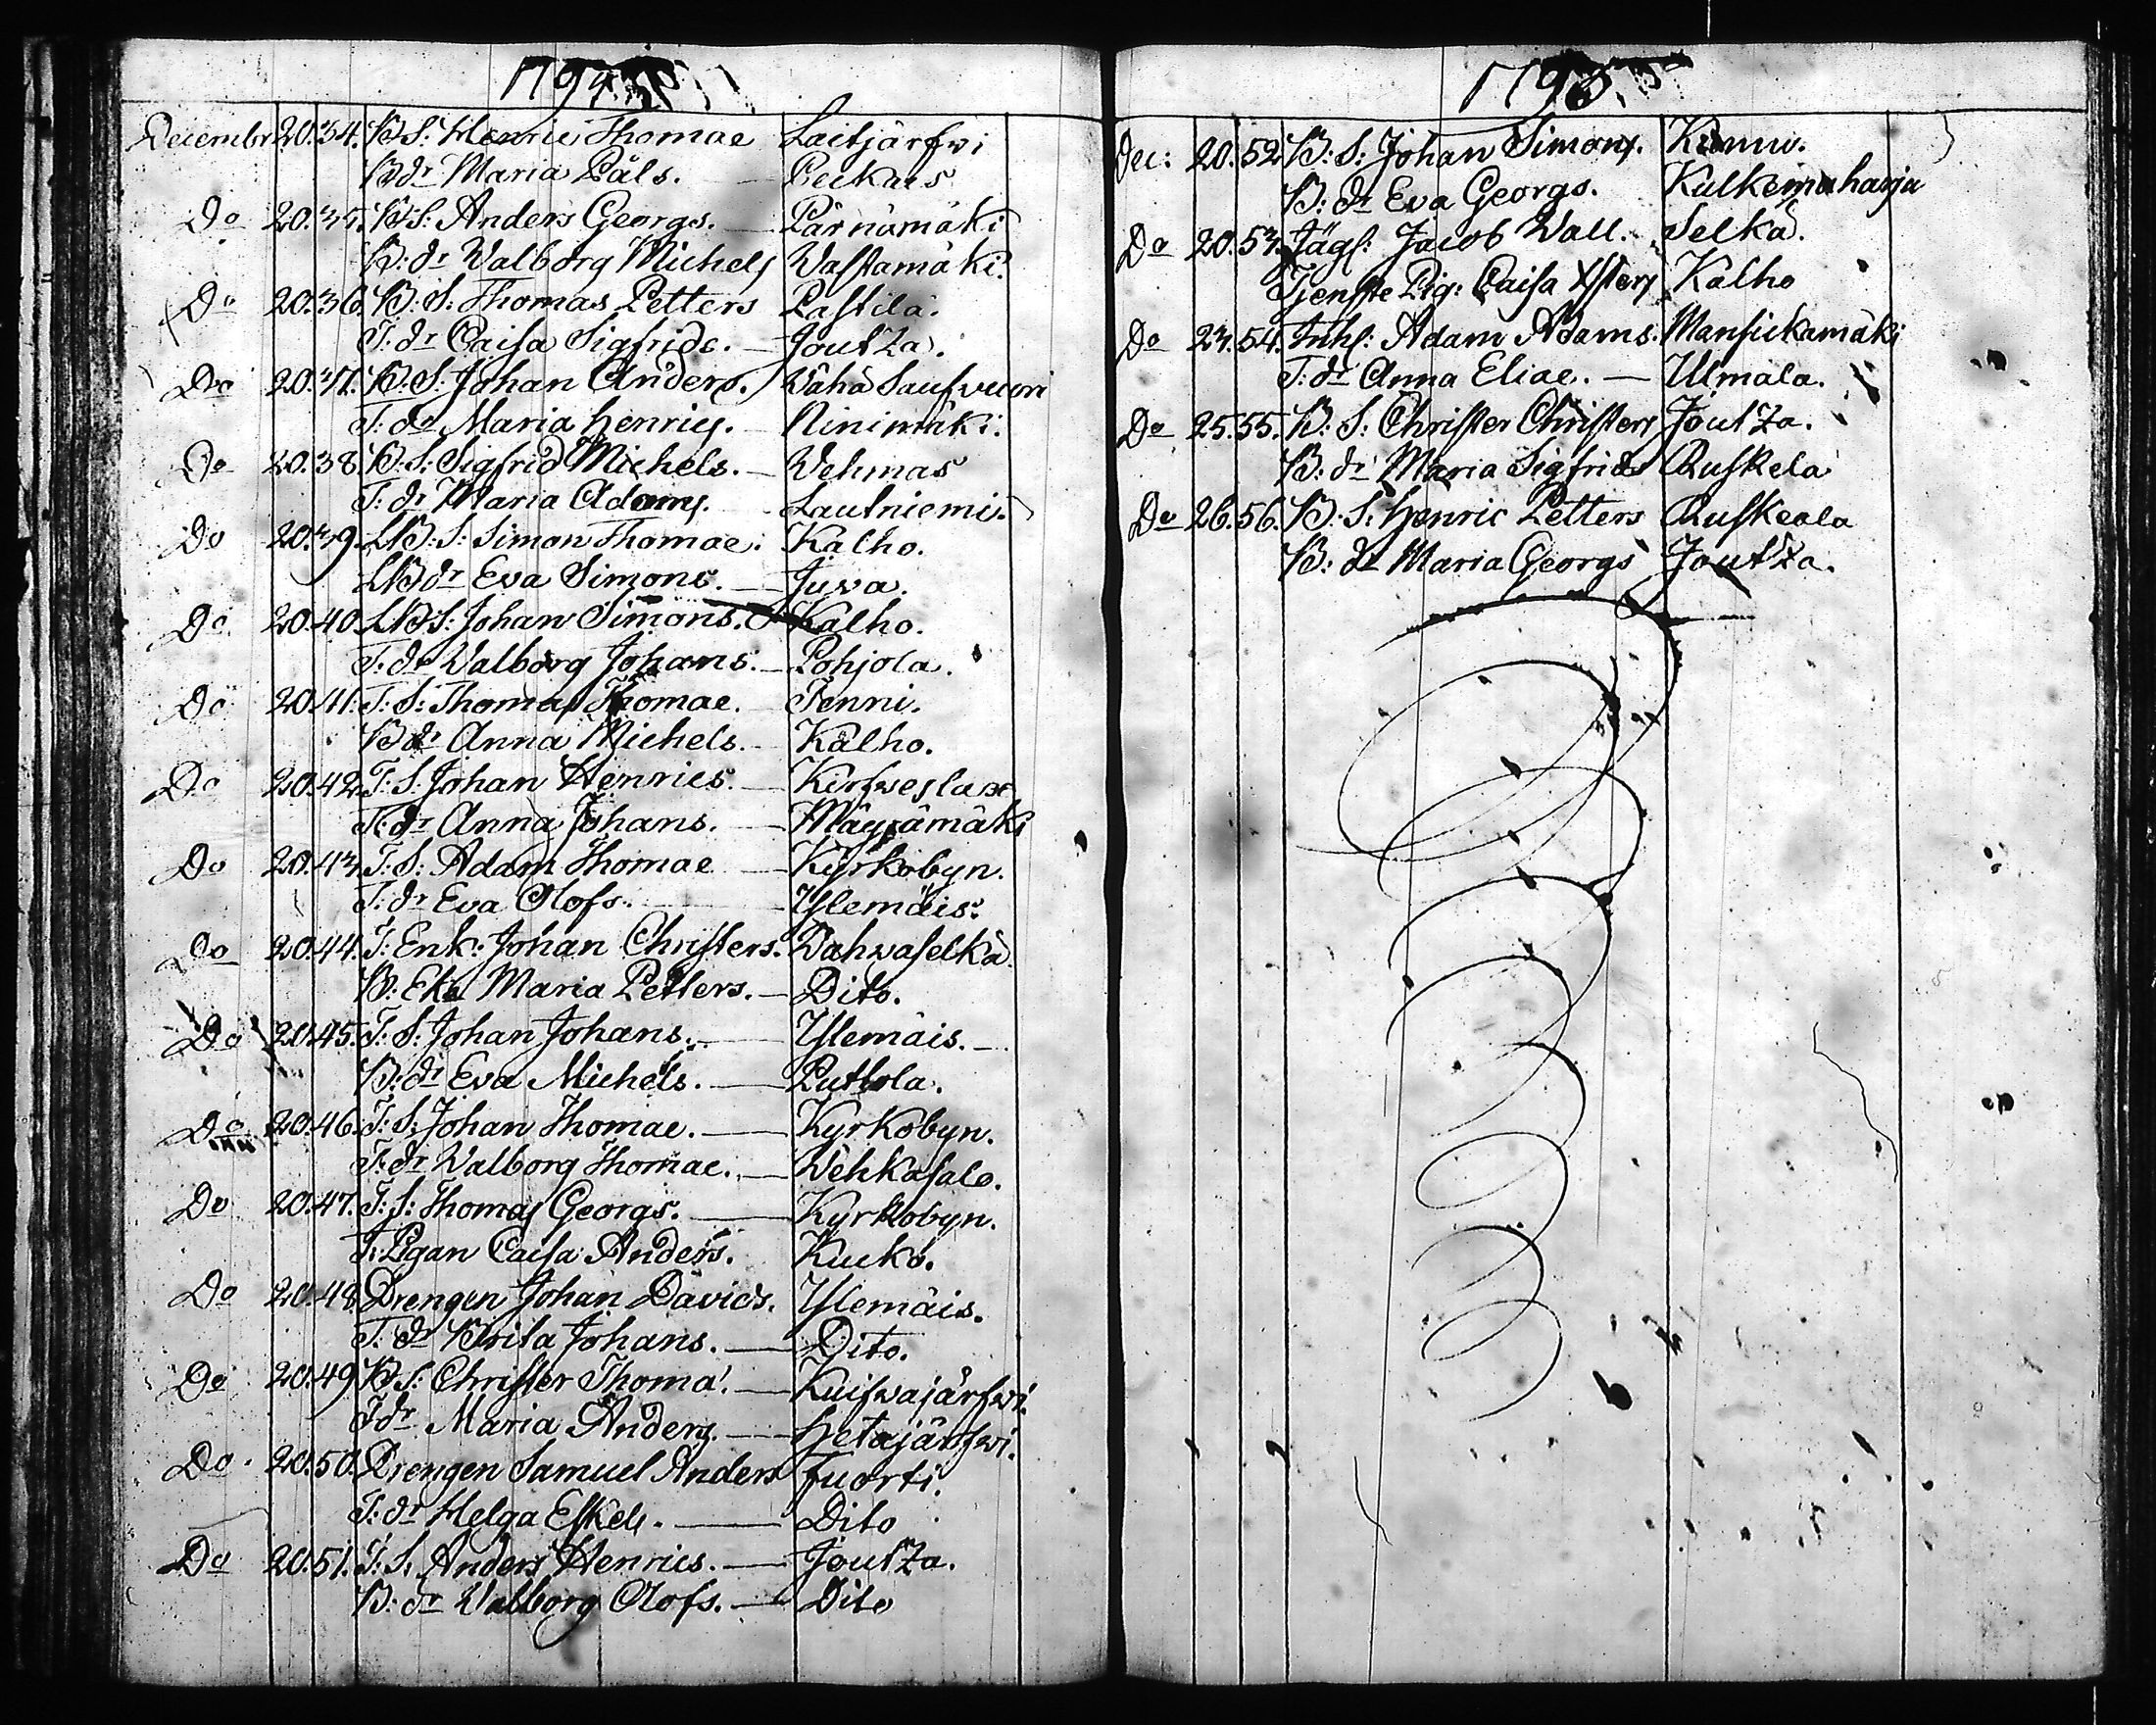 Decembr 20. 34. B S: Henric Thomae Laitjärfwi
B dr Maria Påls. Peckars
Do 20. 35. B S: Anders Georgs. Pärnämäki
B: dr Walborg Michels Wastamäki.
Do 20. 36. B: S: Thomas Petters Pastila.
T. dr Caisa Sigfrids. Joutza.
Do 20. 37. B. S: Johan Anders. Wähä Saufwuori
T: dr Maria Henrics. Ninimäki.
Do 20. 38. B: S: Sigfrid Michels. Wehmas
T: dr Maria Adams. Lautniemi.
Do 20. 39. LB: S: Simon Thomae. Kalho.
LB dr Eva Simons. Juva.
Do 20. 40. LB S: Johan Simons. Kalho.
T: dr Walborg Johans. Pohjola.
Do 20. 41. T: S: Thomas Thomae. Tenni.
B dr Anna Michels. Kalho.
Do 20. 42. T: S. Johan Henrics. Kirfweslax
T: dr Anna Johans. Mäyrämäki
Do 20. 43. T: S: Adam Thomae Kyrkobyn.
T: dr Eva Olofs. Ylemäis.
Do 20. 44. T: Enk: Johan Christers. Wahwaselkä.
B: Eka Maria Petters. Dito.
Do 20. 45. T: S: Johan Johans. Ylemäis.
B: dr Eva Michels. Puttola.
Do 20. 46. T: S: Johan Thomae. Kyrkobyn.
T: dr Walborg Thomae. Wehkasalo.
Do 20. 47. T: S: Thomas Georgs. Kyrkobyn.
T: Pigan Caisa Anders. Kucko.
Do 20. 48. Drengen Johan Davids. Ylemäis.
T: dr Brita Johans. Dito.
Do 20. 49. B S: Christer Thomae. Kuifwajärfwi.
T dr Maria Anders. Hetajärfwi.
Do 20. 50. Drengen Samuel Anders Tuorti.
T: dr Helga Eskels. Dito
Do 20. 51. T: S: Anders Henrics. Joutza.
B: dr Walborg Olofs. Dito
Dec: 20. 52. B: S: Johan Simons.
B: dr Eva Georgs. Kulkemaharja
Do 20. 53. Jägs: Jacob Wall. Selkä.
Tjenste Pig: Caisa Xsters Kalho
Do 23. 54. Inhs: Adam Adams. Mansickamäki
T: dr Anna Eliae. Ulmala.
Do 25. 55. B: S: Christer Christers Joutza.
B: dr Maria Sigfrids Ruskela
Do 26. 56. B: S: Henric Petters Ruskeala
B: dr Maria Georgs Joutza.